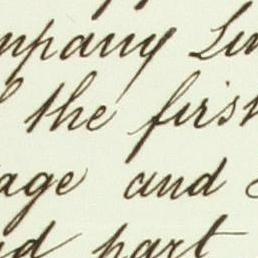 mpany Lim
the first
age and
nd part